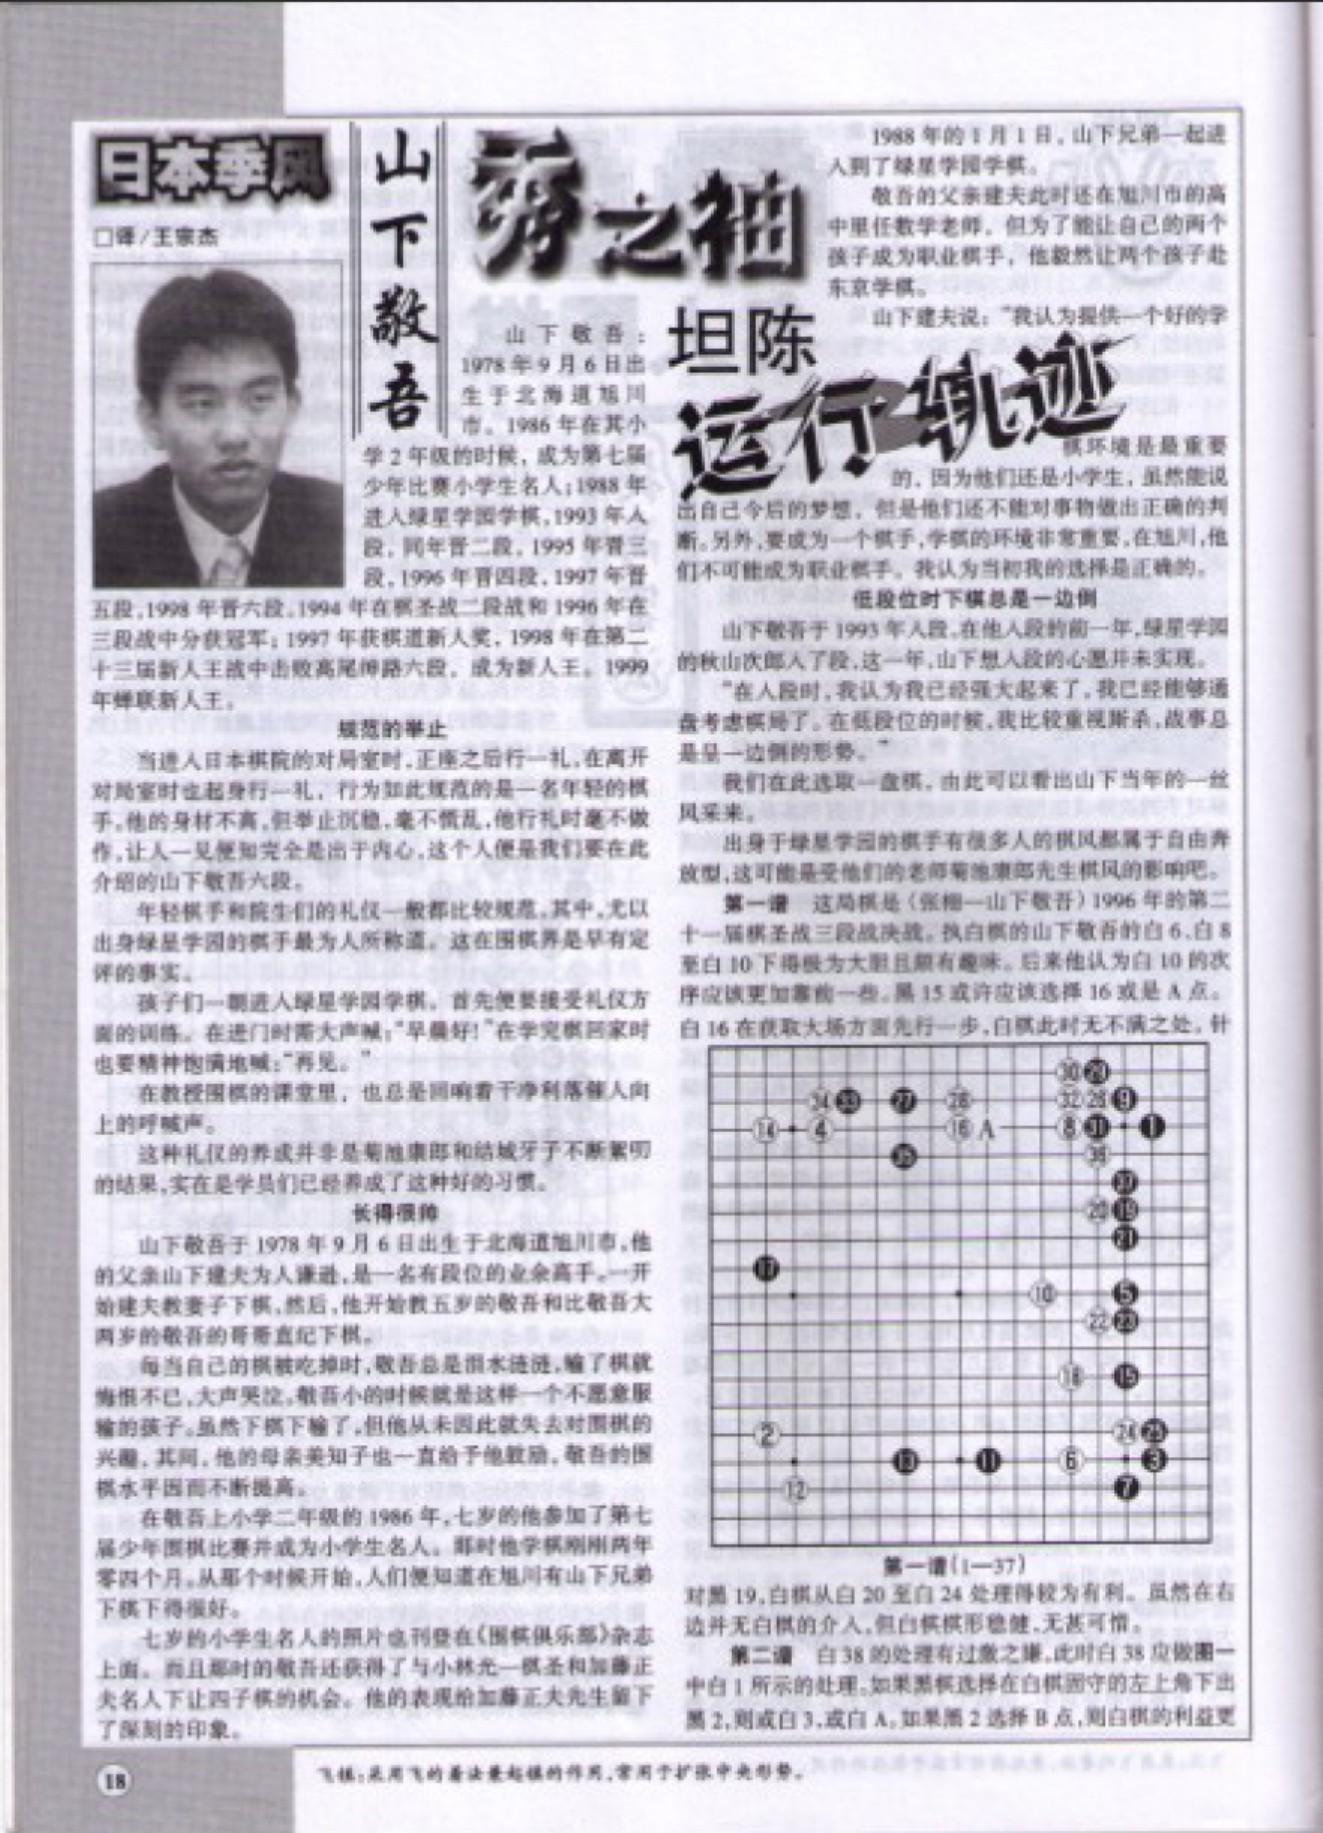 日本季风
□译/王宗杰
山下敬吾
秀之袖
坦陈
运行轨迹
山下敬吾：
1978年9月6日出
生于北海道旭川
市。1986年在其小
学2年级的时候，成为第七届
少年比赛小学生名人；1988年
进入绿星学园学棋，1993年入
段，同年晋二段，1995年晋三
段，1996年晋四段，1997年晋
五段，1998年晋六段。1994年在棋圣战二段战和1996年在
三段战中分获冠军；1997年获棋道新人奖，1998年在第二
十三届新人王战中击败高尾绅路六段，成为新人王。1999
年蝉联新人王。
规范的举止
当进入日本棋院的对局室时，正座之后行一礼，在离开
对局室时也起身行一礼，行为如此规范的是一名年轻的棋
手。他的身材不高，但举止沉稳，毫不慌乱，他行礼时毫不做
作，让人一见便知完全是出于内心，这个人便是我们要在此
介绍的山下敬吾六段。
年轻棋手和院生们的礼仪一般都比较规范。其中，尤以
出身绿星学园的棋手最为人所称道。这在围棋界是早有定
评的事实。
孩子们一朝进入绿星学园学棋，首先便要接受礼仪方
面的训练。在进门时需大声喊：“早晨好！”在学完棋回家时
也要精神饱满地喊：“再见。”
在教授围棋的课堂里，也总是回响着干净利落催人向
上的呼喊声。
这种礼仪的养成并非是菊池康郎和结城牙子不断絮叨
的结果，实在是学员们已经养成了这种好的习惯。
长得很帅
山下敬吾于1978年9月6日出生于北海道旭川市，他
的父亲山下建夫为人谦逊，是一名有段位的业余高手。一开
始建夫教妻子下棋，然后，他开始教五岁的敬吾和比敬吾大
两岁的敬吾的哥哥直纪下棋。
每当自己的棋被吃掉时，敬吾总是泪水涟涟，输了棋就
悔恨不已，大声哭泣。敬吾小的时候就是这样一个不愿意服
输的孩子。虽然下棋下输了，但他从未因此就失去对围棋的
兴趣，其间，他的母亲美知子也一直给予他鼓励，敬吾的围
棋水平因而不断提高。
在敬吾上小学二年级的1986年，七岁的他参加了第七
届少年围棋比赛并成为小学生名人。那时他学棋刚刚两年
零四个月。从那个时候开始，人们便知道在旭川有山下兄弟
下棋下得很好。
七岁的小学生名人的照片也刊登在《围棋俱乐部》杂志
上面。而且那时的敬吾还获得了与小林光一棋圣和加藤正
夫名人下让四子棋的机会。他的表现给加藤正夫先生留下
了深刻的印象。
1988年的1月1日，山下兄弟一起进
入到了绿星学园学棋。
敬吾的父亲建夫此时还在旭川市的高
中里任数学老师，但为了能让自己的两个
孩子成为职业棋手，他毅然让两个孩子赴
东京学棋。
山下建夫说：“我认为提供一个好的学
棋环境是最重要
的，因为他们还是小学生，虽然能说
出自己今后的梦想，但是他们还不能对事物做出正确的判
断。另外，要成为一个棋手，学棋的环境非常重要，在旭川，他
们不可能成为职业棋手。我认为当初我的选择是正确的。
低段位时下棋总是一边倒
山下敬吾于1993年入段，在他入段的前一年，绿星学园
的秋山次郎入了段，这一年，山下想入段的心愿并未实现。
“在入段时，我认为我已经强大起来了，我已经能够通
盘考虑棋局了。在低段位的时候，我比较重视厮杀，战事总
是呈一边倒的形势。”
我们在此选取一盘棋，由此可以看出山下当年的一丝
风采来。
出身于绿星学园的棋手有很多人的棋风都属于自由奔
放型，这可能是受他们的老师菊池康郎先生棋风的影响吧。
第一谱 这局棋是（张栩—山下敬吾）1996年的第二
十一届棋圣战三段战决战。执白棋的山下敬吾的白6、白8
至白10下得极为大胆且颇有趣味。后来他认为白10的次
序应该更加靠前一些。黑15或许应该选择16或是A点。
白16在获取大场方面先行一步，白棋此时无不满之处。针
30 29
34 33 27 26 32 28 9
14 4 16 A 8 31 1
35 36
37
20 19
21
17
10 5
22 23
18 15
2 24 25
13 11 6 3
12 7
第一谱（1—37）
对黑19，白棋从白20至白24处理得较为有利。虽然在右
边并无白棋的介入，但白棋棋形稳健，无甚可惜。
第二谱 白38的处理有过激之嫌，此时白38应做图一
中白1所示的处理。如果黑棋选择在白棋固守的左上角下出
黑2，则或白3，或白A。如果黑2选择B点，则白棋的利益更
18
飞镇：采用飞的着法兼起镇的作用，常用于扩张中央形势。